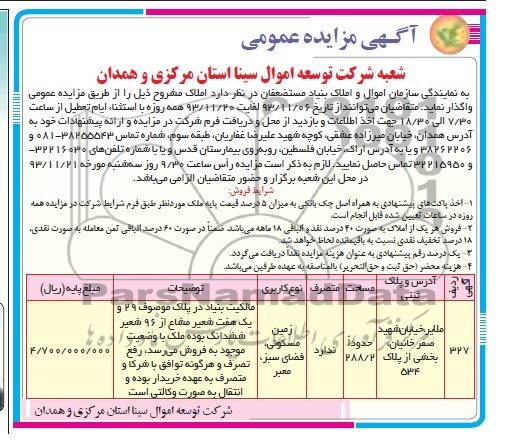 آگهی مزایده عمومی
شعبه شرکت توسعه اموال سینا استان مرکزی و همدان
به نمایندگی سازمان اموال و املاک بنیاد مستضعفان در نظر دارد املاک مشروح ذیل را از طریق مزایده عمومی
واگذار نماید. متقاضیان می‌توانند از تاریخ ۹۳/۱۱/۰۶ لغایت ۹۳/۱۱/۲۰ همه روزه با استثناء ایام تعطیل از ساعت
۷/۳۰ الی ۱۸/۳۰ جهت اخذ اطلاعات و بازدید از محل و دریافت فرم شرکت در مزایده و ارائه پیشنهادات خود به
آدرس همدان، خیابان میرزاده عشقی، کوچه شهید علیرضا غفاریان، طبقه سوم، شماره تماس ۳۸۲۵۵۵۴۳-۰۸۱ و
۳۸۲۶۲۲۰۶ و یا به آدرس اراک، خیابان فلسطین، روبه‌روی بیمارستان قدس و یا با شماره تلفن‌های ۳۲۲۱۶۰۳۰-
و ۳۲۲۱۵۹۵۰ تماس حاصل نمایند. لازم به ذکر است مزایده رأس ساعت ۹/۳۰ روز سه‌شنبه مورخه ۹۳/۱۱/۲۱
در محل این شعبه برگزار و حضور متقاضیان الزامی می‌باشد.
شرایط فروش:
۱- اخذ پاکت‌های پیشنهادی به همراه اصل چک بانکی به میزان ۵ درصد قیمت پایه ملک موردنظر طبق فرم شرایط شرکت در مزایده همه
روزه در ساعات تعیین شده قابل انجام است.
۲- فروش هر یک از املاک به صورت ۴۰ درصد نقد و الباقی ۱۸ ماهه می‌باشد. ضمناً در صورت ۶۰ درصد الباقی ثمن معامله به صورت نقدی،
۱۸ درصد تخفیف نقدی نسبت به باقیمانده لحاظ خواهد شد.
۳- یک درصد رقم پیشنهادی به عنوان هزینه مزایده نقداً دریافت می‌گردد.
۴- هزینه محضر (حق ثبت و حق‌التحریر) بالمناصفه به عهده طرفین می‌باشد.
ردیف آگهی
آدرس و پلاک ثبتی
مساحت
متصرف
نوع کاربری
توضیحات
مبلغ پایه (ریال)
۳۲۷
ملایر خیابان شهید صفر خانیان، بخشی از پلاک ۵۳۴
حدوداً ۲۸۸/۲
ندارد
زمین مسکونی، فضای سبز، معبر
مالکیت بنیاد در پلاک موصوف ۲۹ و
یک هفت شعیر مشاع از ۹۶ شعیر
ششدانگ بوده ملک با وضعیت
موجود به فروش می‌رسد، رفع
تصرف و هرگونه توافق با شرکا و
متصرف به عهده خریدار بوده و
انتقال به صورت وکالتی است
۴/۷۰۰/۰۰۰/۰۰۰
شرکت توسعه اموال سینا استان مرکزی و همدان
ParsNamadData